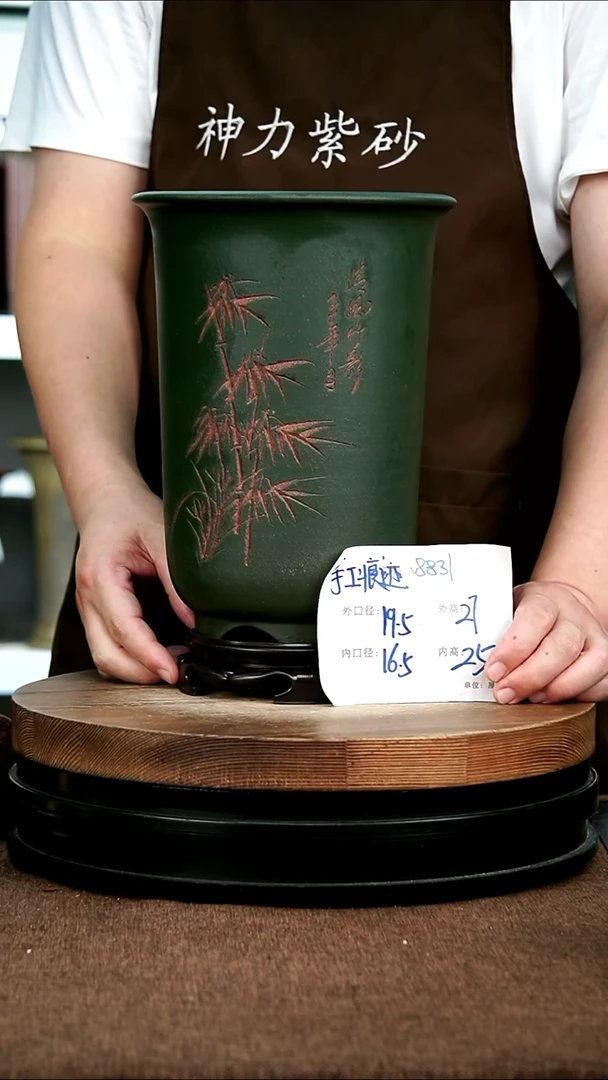 神力紫砂
清風竹影
手工痕迹 8831
外口径: 19.5 外高: 27
内口径: 16.5 内高: 25
单位: